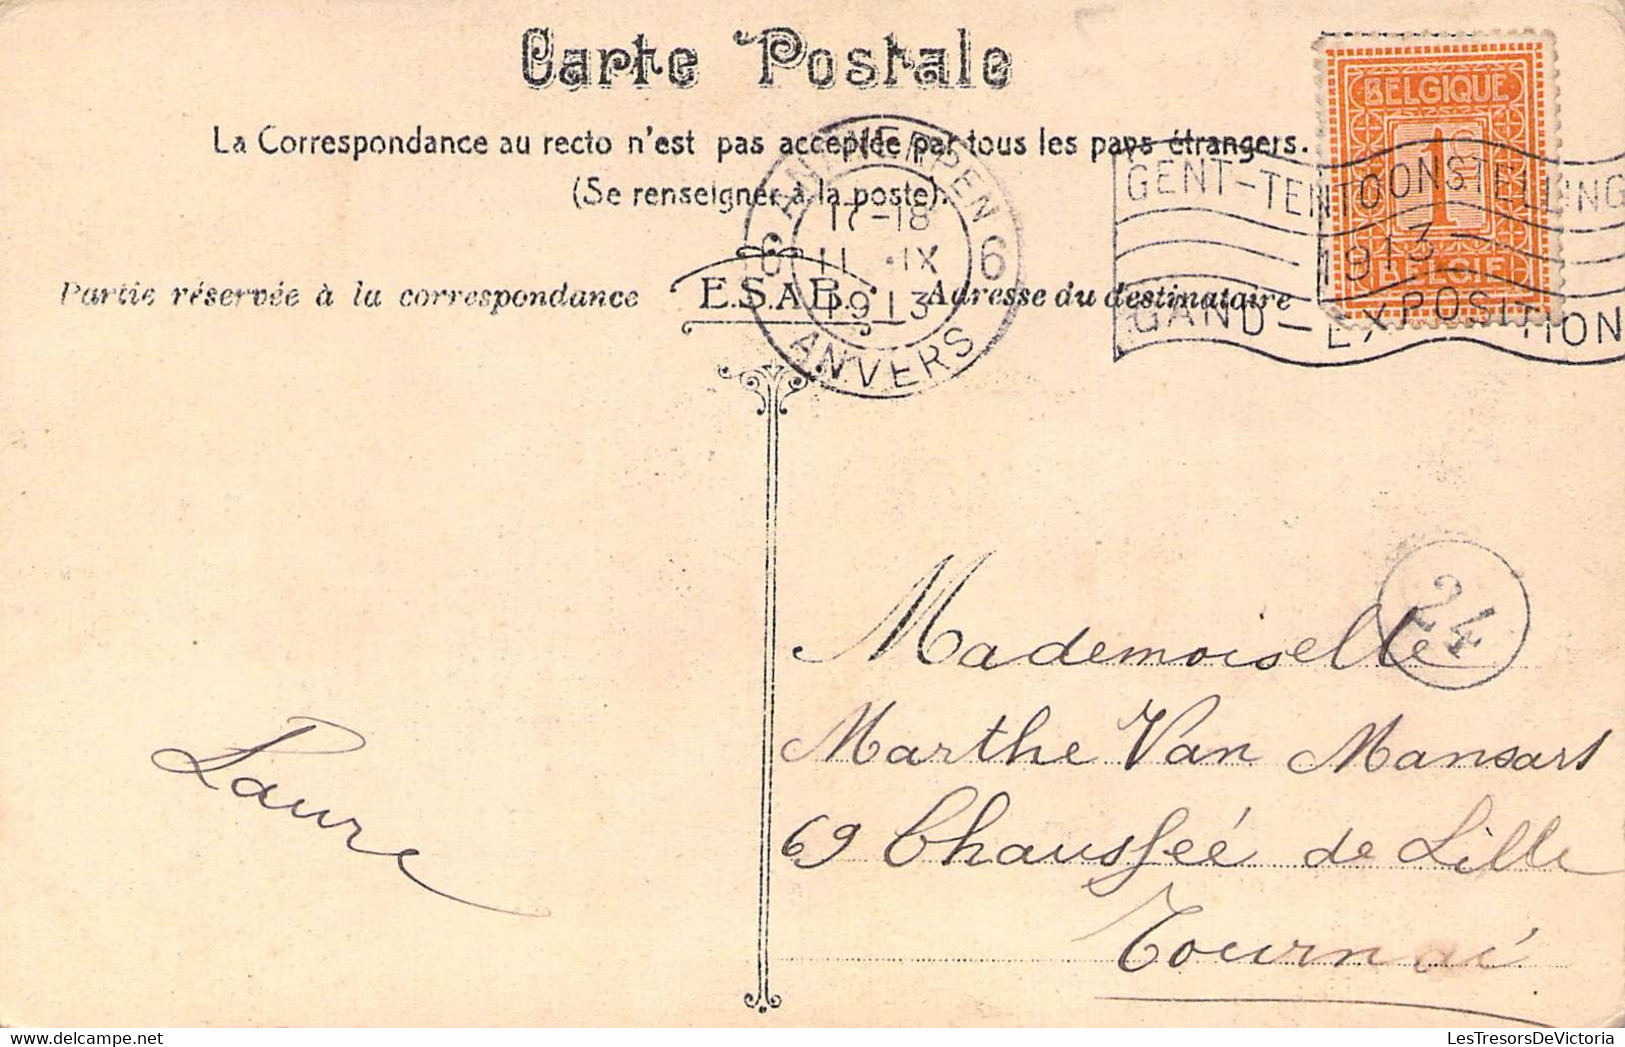 Carte Postale
La Correspondance au recto n'est pas acceptée par tous les pays étrangers.
(Se renseigner à la poste).
BELGIQUE
1c
BELGIË
ANTWERPEN
17-18
6 11 . IX 6
1913
ANVERS
GENT-TENTOONSTELLING
1913
GAND-EXPOSITION
Partie réservée à la correspondance
E.S.A.B.
Adresse du destinataire
24
Mademoiselle
Marthe Van Mansart
69 Chausséé de Lille
Tournai
Laure
LesTresorsDeVictoria
https://www.delcampe.net